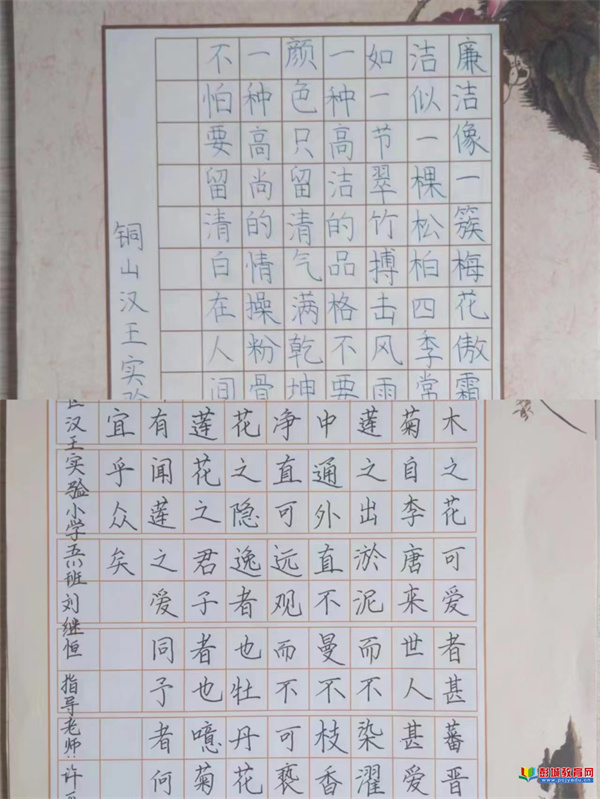 廉洁像一簇梅花傲霜
洁似一棵松柏四季常
如一节翠竹搏击风雨
一种高洁的品格不要
颜色只留清气满乾坤
一种高尚的情操粉骨
不怕要留清白在人间
铜山汉王实验
木之花可爱者甚蕃晋
菊自李唐来世人甚爱
莲之出淤泥而不染濯
中通外直不曼不枝香
净直可远观而不可亵
花之隐逸者也牡丹花
莲花之君子者也噫菊
有闻莲之爱同予者何
宜乎众矣
汉王实验小学五(1)班刘继恒 指导老师:许
彭城教育网